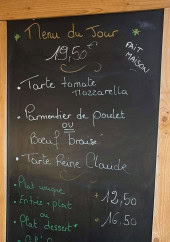 Menu du Jour
19,50
FAIT
MAISON
• Tarte tomate
mozzarella
• Parmentier de poulet
ou
Boeuf braisé
• Tarte Reine Claude
• Plat unique
• Entrée - plat 12,50
ou
Plat dessert 16,50